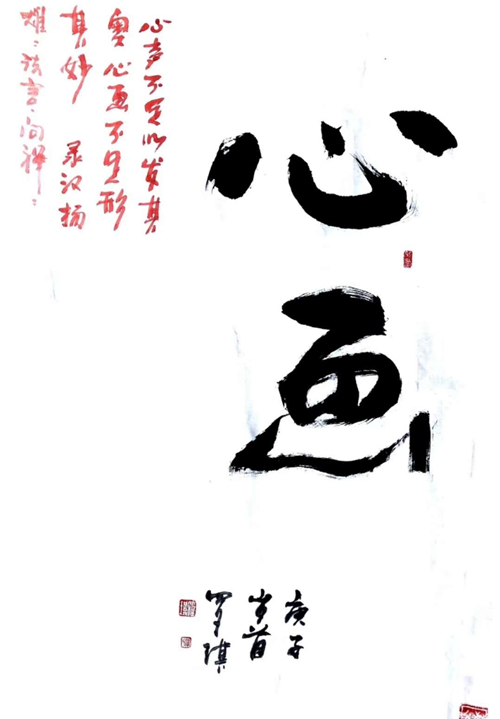 心画
心声不足以发其
奥心画不足形
其妙 录汉扬
雄法言问神
庚子
岁首
罗琪